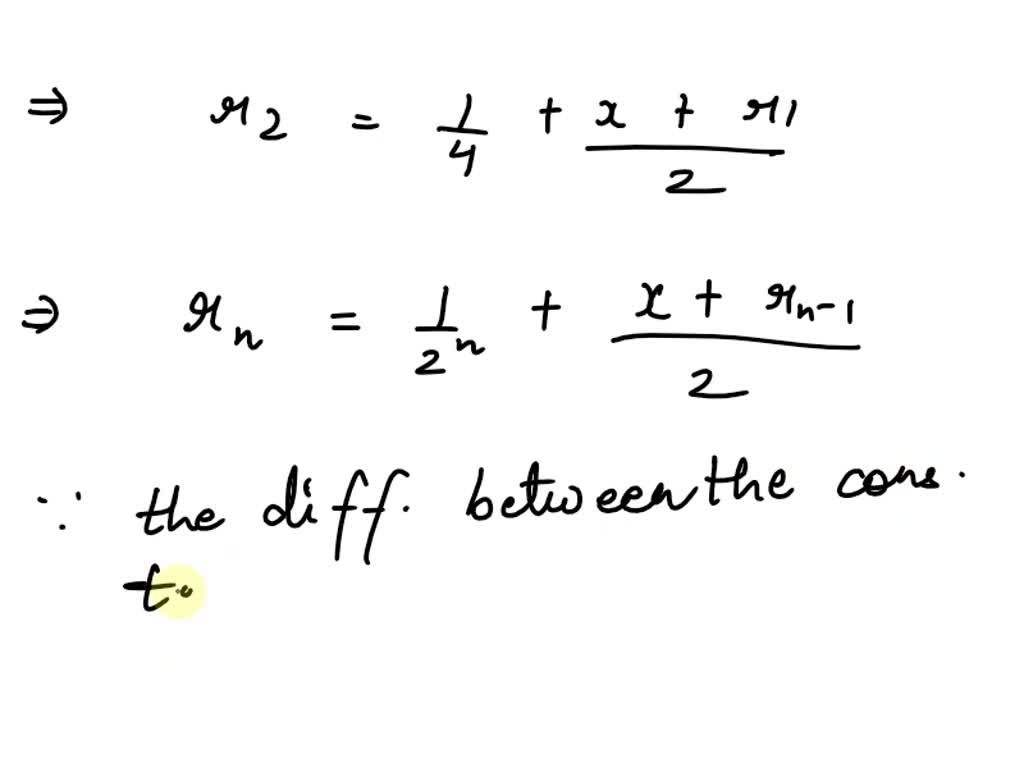 ⇒ r2 = 1/4 + (x + r1)/2
⇒ rn = 1/2^n + (x + rn-1)/2
∵ the diff. between the cons.